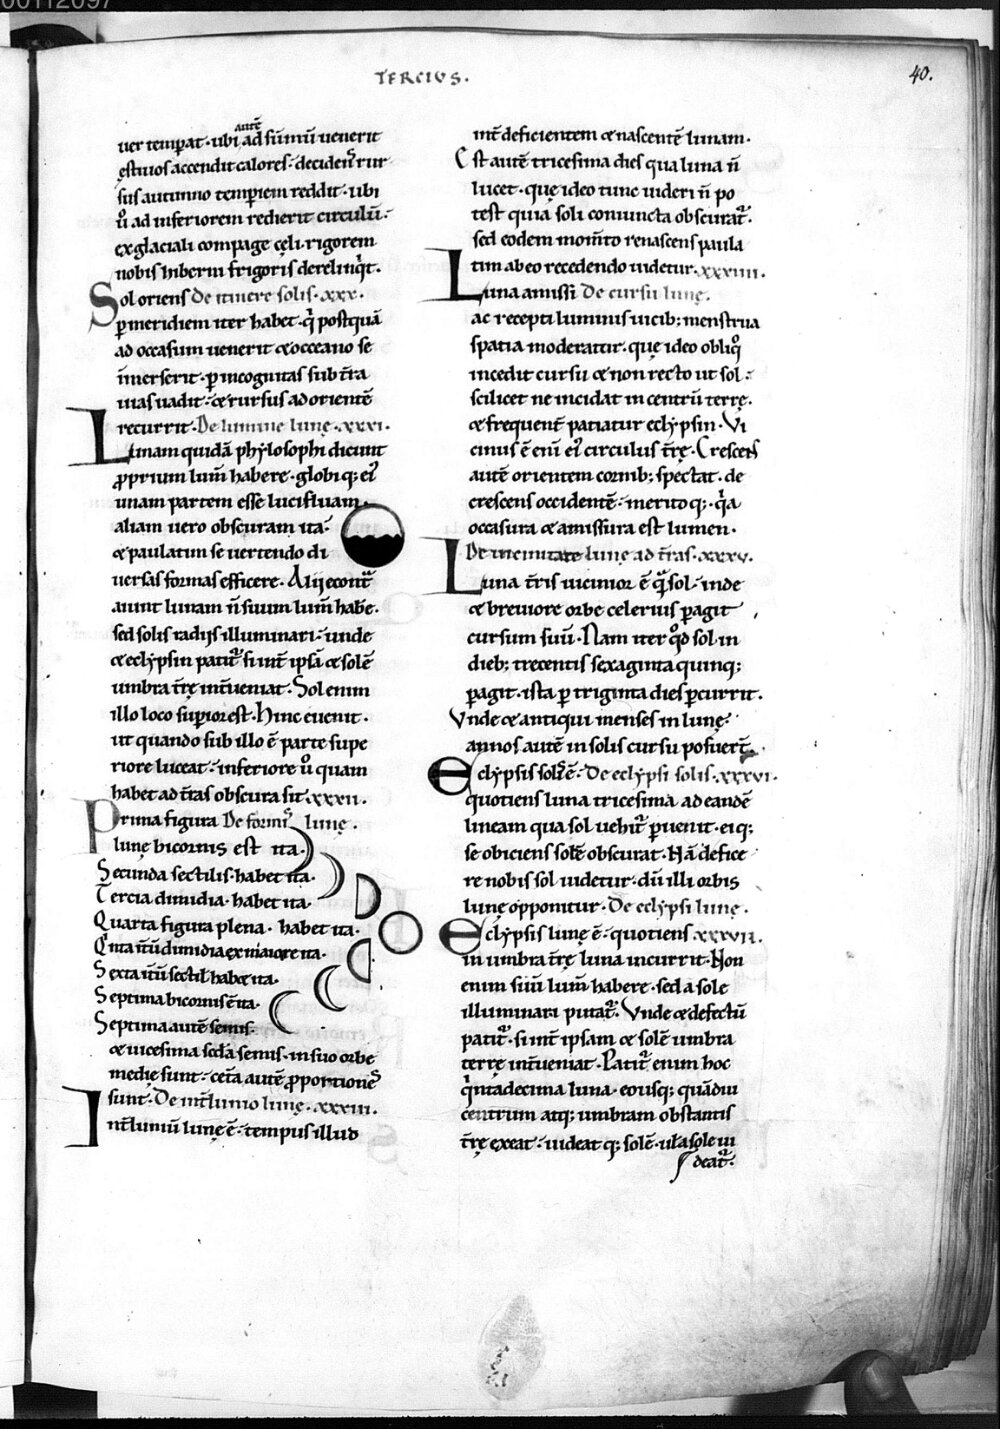 00112097
TERCIUS.
40.
autē
uer temꝑat· ubi ad sūmū uenerit
ęstiuos accendit calores· decidens rur
sus autūno temperiem reddit· ubi
ů ad inferiorem redierit circulū·
ex glaciali compage cęli· rigorem
nobis hiberni frigoris derelinqͥt.
Sol oriens De itinere solis· xxx.
ꝑ meridiem iter habet· qͥ postquā
ad occasum uenerit & occeano se
īmerserit· ꝑ incognitas sub t̄ra
uias uadit· & rursus ad orientē
recurrit· De lumine lunę· xxxi.
Lunam quidā phylosophi dicunt
ꝓprium lum̄ habere· globiq; ei᷒
unam partem esse lucifluam
aliam uero obscuram ita·
& paulatim se uertendo di
uersas formas efficere· Alij econt̄ͣ
aiunt lunam n̄ suum lum̄ habe.
sed solis radijs illuminari· unde
& eclypsin patit᷑ si int̄ ipsā & solē
umbra t̄rę int̄ueniat· Sol enim
illo loco suꝑior est· Hinc euenit·
ut quando sub illo ē parte supe
riore luceat· inferiore ů quam
habet ad t̄ras obscura sit· xxxii.
Prima figura De formis lunę.
lunę bicornis est ita·
Secunda sectilis· habet ita·
Tercia dimidia· habet ita·
Quarta figura plena· habet ita·
Qͥnta it̄ū dimidia ex maiore ita·
Sexta it̄ū sectil̄ habet ita·
Septima bicornis ē ita·
Septima autē semis·
& uicesima sc̄da semis· in suo orbe
medię sunt· cet̄a autē ꝓportiones
sunt· De int̄lunio lunę· xxxiii.
Int̄luniū lunę ē· tempus illud
int̄ deficientem & nascentē lunam.
Est autē tricesima dies qua luna n̄
lucet· quę ideo tunc uideri n̄ po
test quia soli coniuncta obscurat᷑.
sed eodem mom̄to renascens paula
tim ab eo recedendo uidetur· xxxiiii.
Luna amissi De cursu lunę.
ac recepti luminis uicib; menstrua
spatia moderatur· quę ideo obliqͦ
incedit cursu & non recto ut sol·
scilicet ne incidat in centrū terrę.
& frequent̄ patiatur eclypsin· Vi
cinus ē eni ei᷒ circulus t̄rę· Crescens
autē orientem cornib; spectat· de
crescens occidentē· meritoq; qͥa
occasura & amissura est lumen·
De uicinitate lunę ad t̄ras· xxxv.
Luna t̄ris uicinior ē qͣ sol· inde
& breuiore orbe celerius ꝑagit
cursum suū· Nam iter qͦd sol in
dieb; trecentis sexaginta quinq;
ꝑagit· ista ꝑ triginta dies ꝑcurrit.
Vnde & antiqui menses in lunę·
annos autē in solis cursu posuer̄t·
Eclypsis solis ē· De eclypsi solis· xxxvi.
quotiens luna tricesima ad eandē
lineam qua sol uehit᷑ ꝑuenit· eiq;
se obiciens solē obscurat· Nā defice
re nobis sol uidetur· dū illi orbis
lunę opponitur· De eclypsi lunę.
Eclypsis lunę ē· quotiens xxxvii.
in umbra t̄rę luna incurrit· Non
enim suū lum̄ habere· sed a sole
illuminari putat᷑· Vnde & defectū
patit᷑· si int̄ ipsam & solē umbra
terrę int̄ueniat· Patit᷑ enim hoc
qͥntadecima luna· eousq; quādiu
centrum atq; umbram obstantis
t̄rę exeat· uideatq; solē· ul̄ a sole ui
deat᷑·